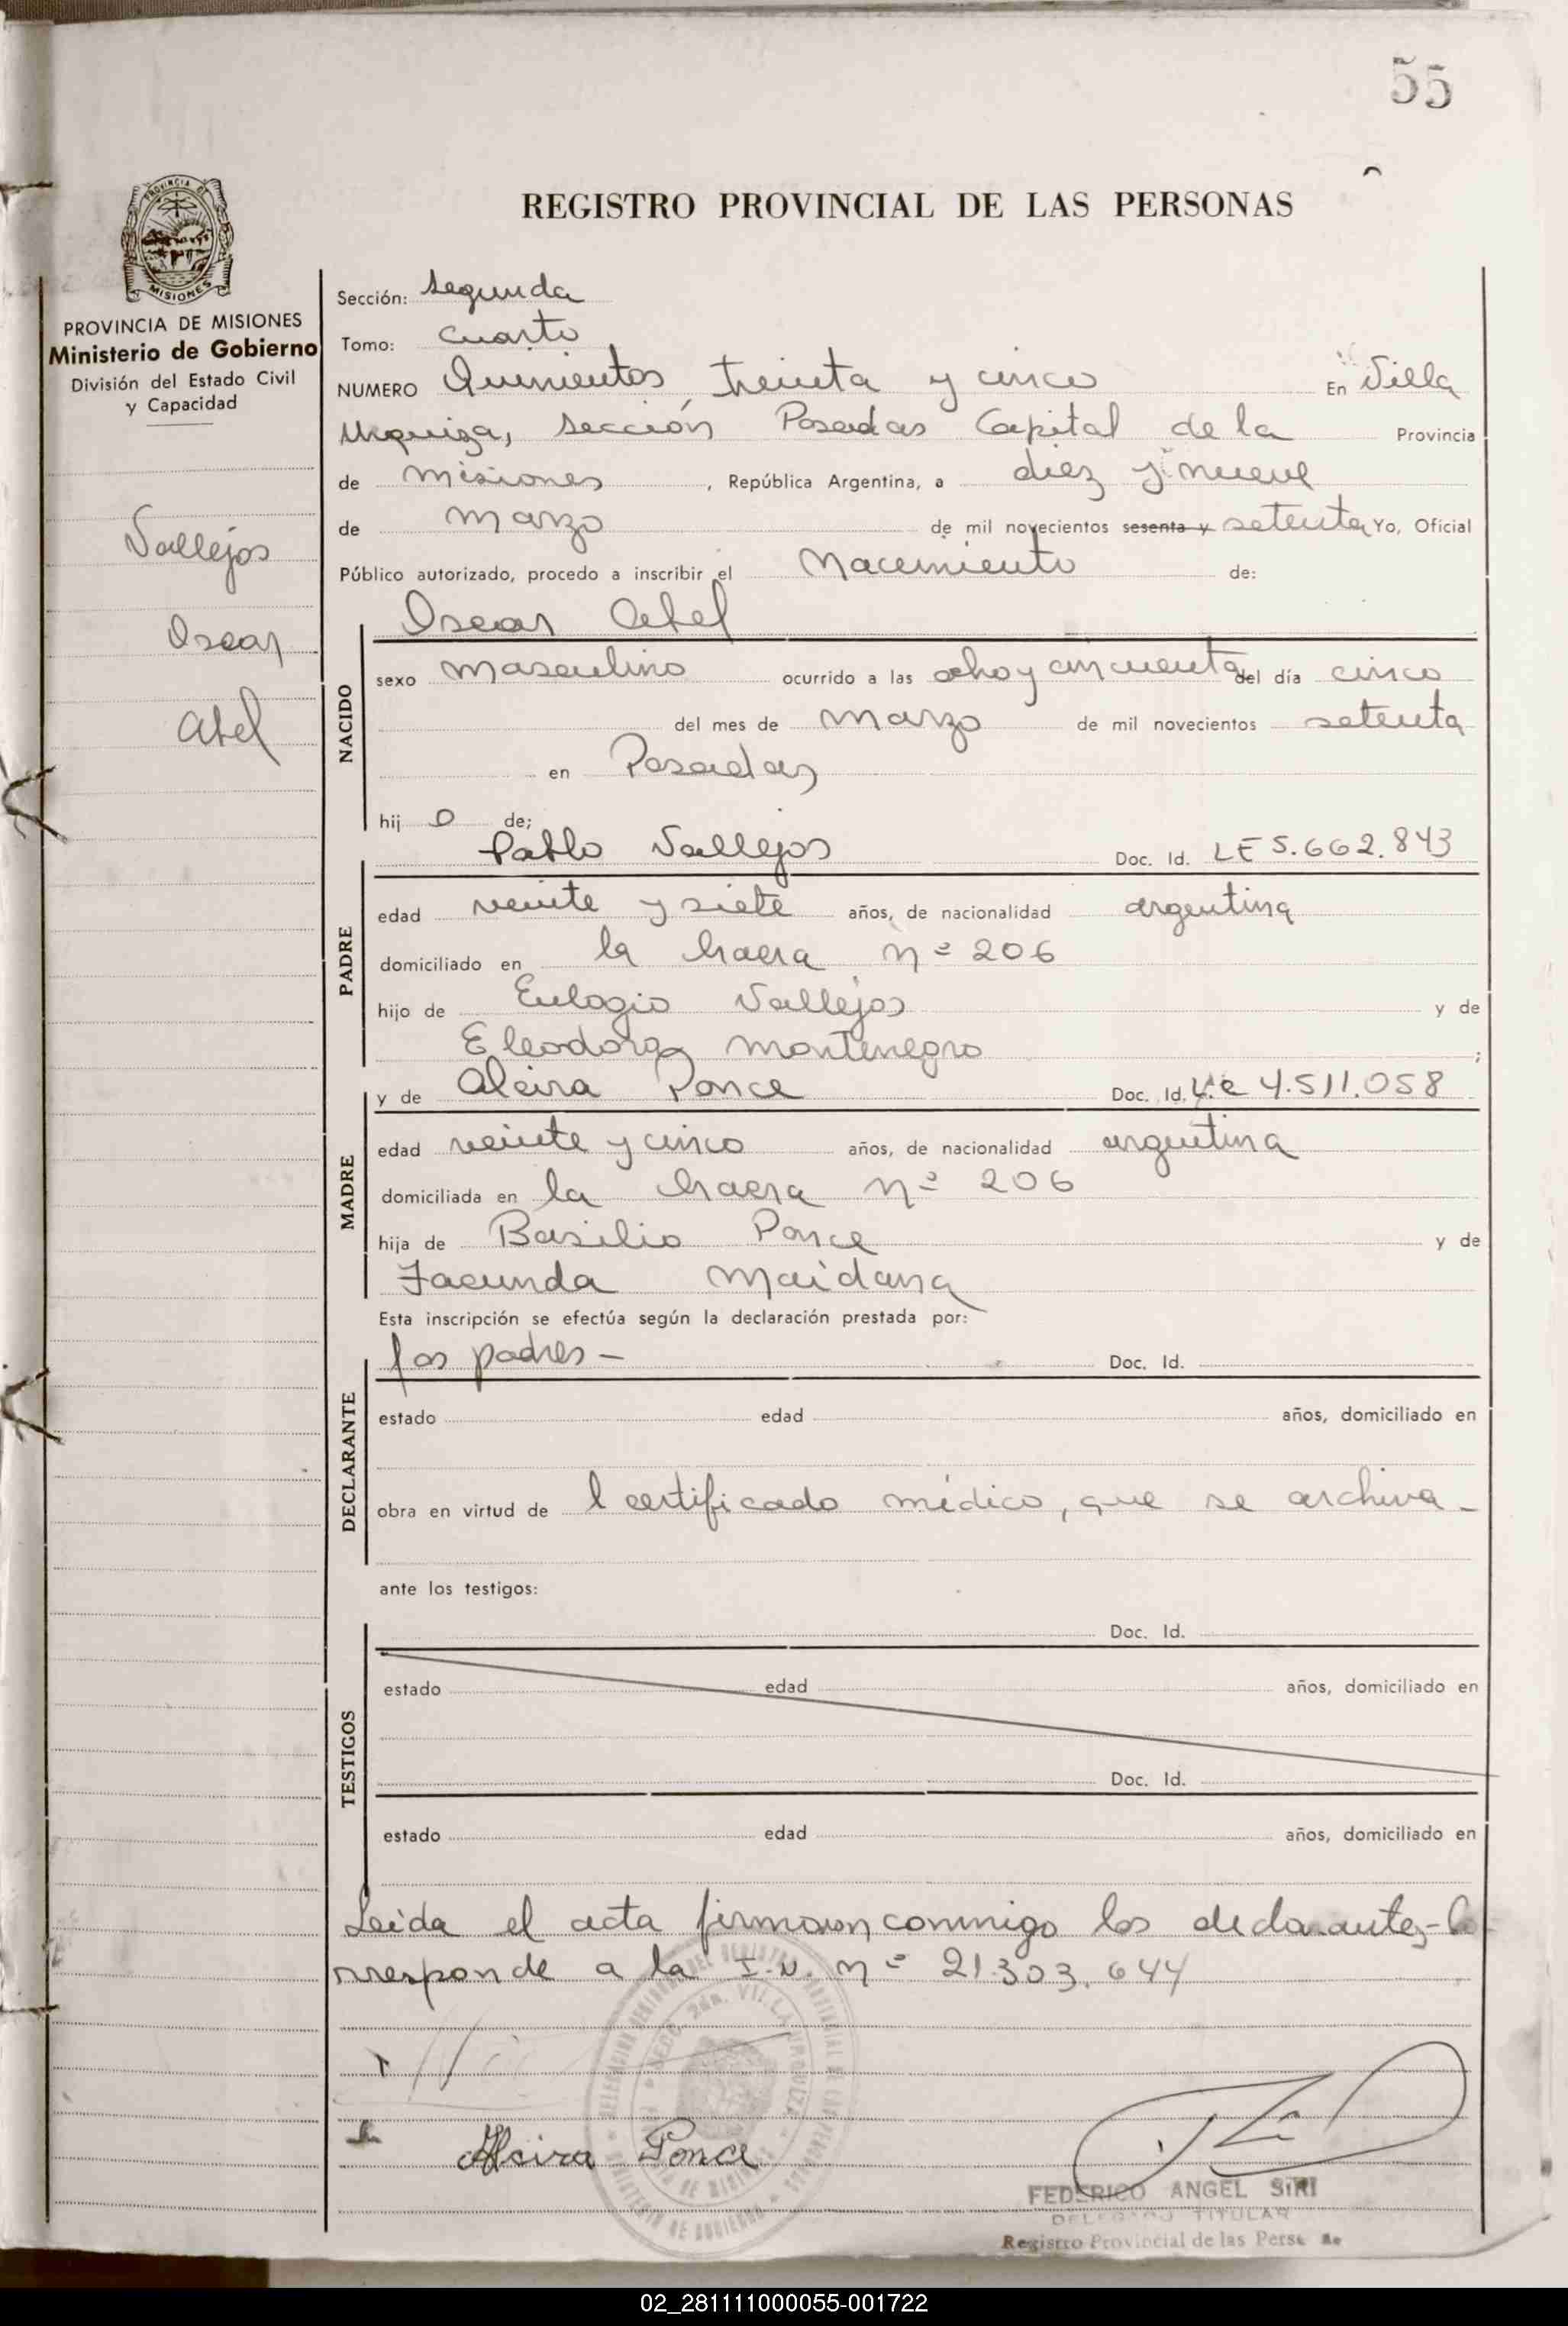 55
REGISTRO PROVINCIAL DE LAS PERSONAS
PROVINCIA DE MISIONES
PROVINCIA DE MISIONES
Ministerio de Gobierno
División del Estado Civil
y Capacidad
Vallejos
Oscar
Abel
Sección: Segunda
Tomo: Cuarto
NUMERO Quinientos treinta y cinco En Villa
Urquiza, Sección Posadas Capital de la Provincia
de Misiones, República Argentina, a diez y nueve
de Marzo de mil novecientos sesenta y setenta Yo, Oficial
Público autorizado, procedo a inscribir el Nacimiento de:
Oscar Abel
NACIDO
sexo Masculino ocurrido a las ocho y cincuenta del día cinco
del mes de Marzo de mil novecientos setenta
en Posadas
hij o de;
Pablo Vallejos Doc. Id. LE 5.662.843
PADRE
edad veinte y siete años, de nacionalidad argentina
domiciliado en la Chacra Nº 206
hijo de Eulogio Vallejos y de
Eleodora Montenegro;
y de Alcira Ponce Doc. Id. L.C 4.511.058
MADRE
edad veinte y cinco años, de nacionalidad argentina
domiciliada en la Chacra Nº 206
hija de Basilio Ponce y de
Facunda Maidana
Esta inscripción se efectúa según la declaración prestada por:
los padres - Doc. Id.
DECLARANTE
estado edad años, domiciliado en
obra en virtud de l certificado médico, que se archiva -
ante los testigos:
Doc. Id.
TESTIGOS
estado edad años, domiciliado en
Doc. Id.
estado edad años, domiciliado en
Leida el acta firman conmigo los declarantes - Co
rresponde a la I.N. Nº 21.303.644
Alcira Ponce
FEDERICO ANGEL SIRI
DELEGADO TITULAR
Registro Provincial de las Perso
02_281111000055-001722